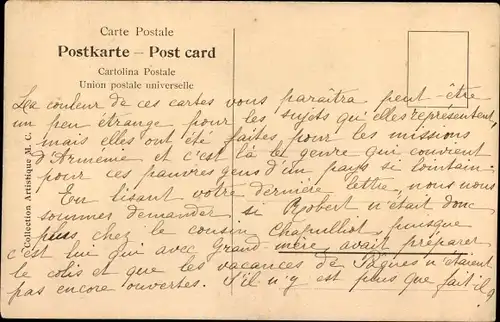 Carte Postale
Postkarte – Post card
Cartolina Postale
Union postale universelle
Collection Artistique M. C.
La couleur de ces cartes vous paraîtra peut-être
un peu étrange pour les sujets qu'elles représentent,
mais elles ont été faites pour les missions
d'Arménie et c'est là le genre qui convient
pour ces pauvres gens d'un pays si lointain.
En lisant votre dernière lettre, nous nous
sommes demander si Robert n'était donc
plus chez le cousin Chapulliot, puisque
c'est lui qui avec Grand-mère, avait préparer
le colis et que les vacances de Pâques n'étaient
pas encore ouvertes. S'il n'y est plus que fait-il?